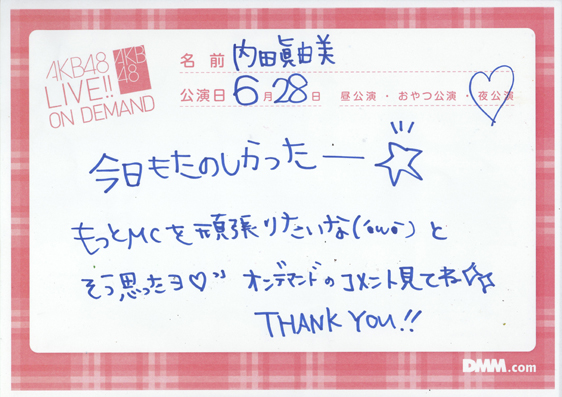 AKB48
LIVE!!
ON DEMAND
AKB
48
名前 内田眞由美
公演日 6月28日 昼公演・おやつ公演・夜公演
今日もたのしかったー☆
もっとMCを頑張りたいな(・ω・)と
そう思ったヨ♡〃 オンデマンドのコメント見てね☆☆
THANK YOU!!
DMM.com